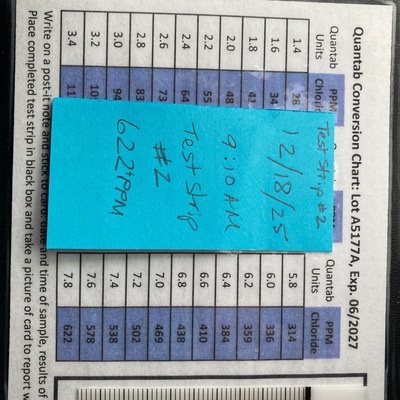 Quantab Conversion Chart: Lot A5177A, Exp. 06/2027
Quantab Units PPM Chloride Quantab Units PPM Chloride
1.4 28 5.8 314
1.6 34 6.0 336
1.8 41 6.2 359
2.0 48 6.4 384
2.2 55 6.6 410
2.4 64 6.8 438
2.6 73 7.0 469
2.8 83 7.2 502
3.0 94 7.4 538
3.2 7.6 578
3.4 7.8 622
Test Strip #2
12/18/25
9:10 AM
Test Strip
#2
622+PPM
Write on a post-it note and stick to card: Date and time of sample, results of
Place completed test strip in black box and take a picture of card to report